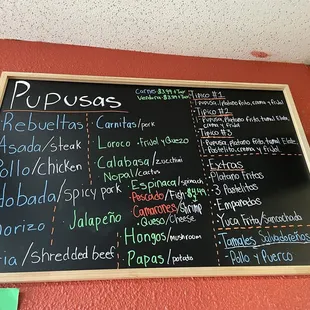 Pupusas
Carnes $3.99 + Tax
Verdura $3.99 + Tax
Rebueltas
Asada/steak
Pollo/chicken
Adobada/spicy pork
Chorizo
/shredded beef
Jalapeño
Carnitas/pork
Loroco • Frijol y Quezo
Calabasa/zucchini
Nopal/cactus
Espinaca/spinach
Pescado/Fish $4.99
Camarones/Shrimp
• Queso/Cheese
Hongos/mushroom
Papas/potato
Tipico #1
Pupusa, platano frito, crema y frijol
Tipico #2
Pupusa, Platano frito, tamal Elote,
crema y frijol
Tipico #3
Pupusa, platano frito, tamal Elote,
Pastelito, crema y frijol
Extras
Platano Fritos
3 Pastelitos
Empanadas
Yuca Frita/Sancochada
Tamales Salvadoreños
• Pollo y Puerco